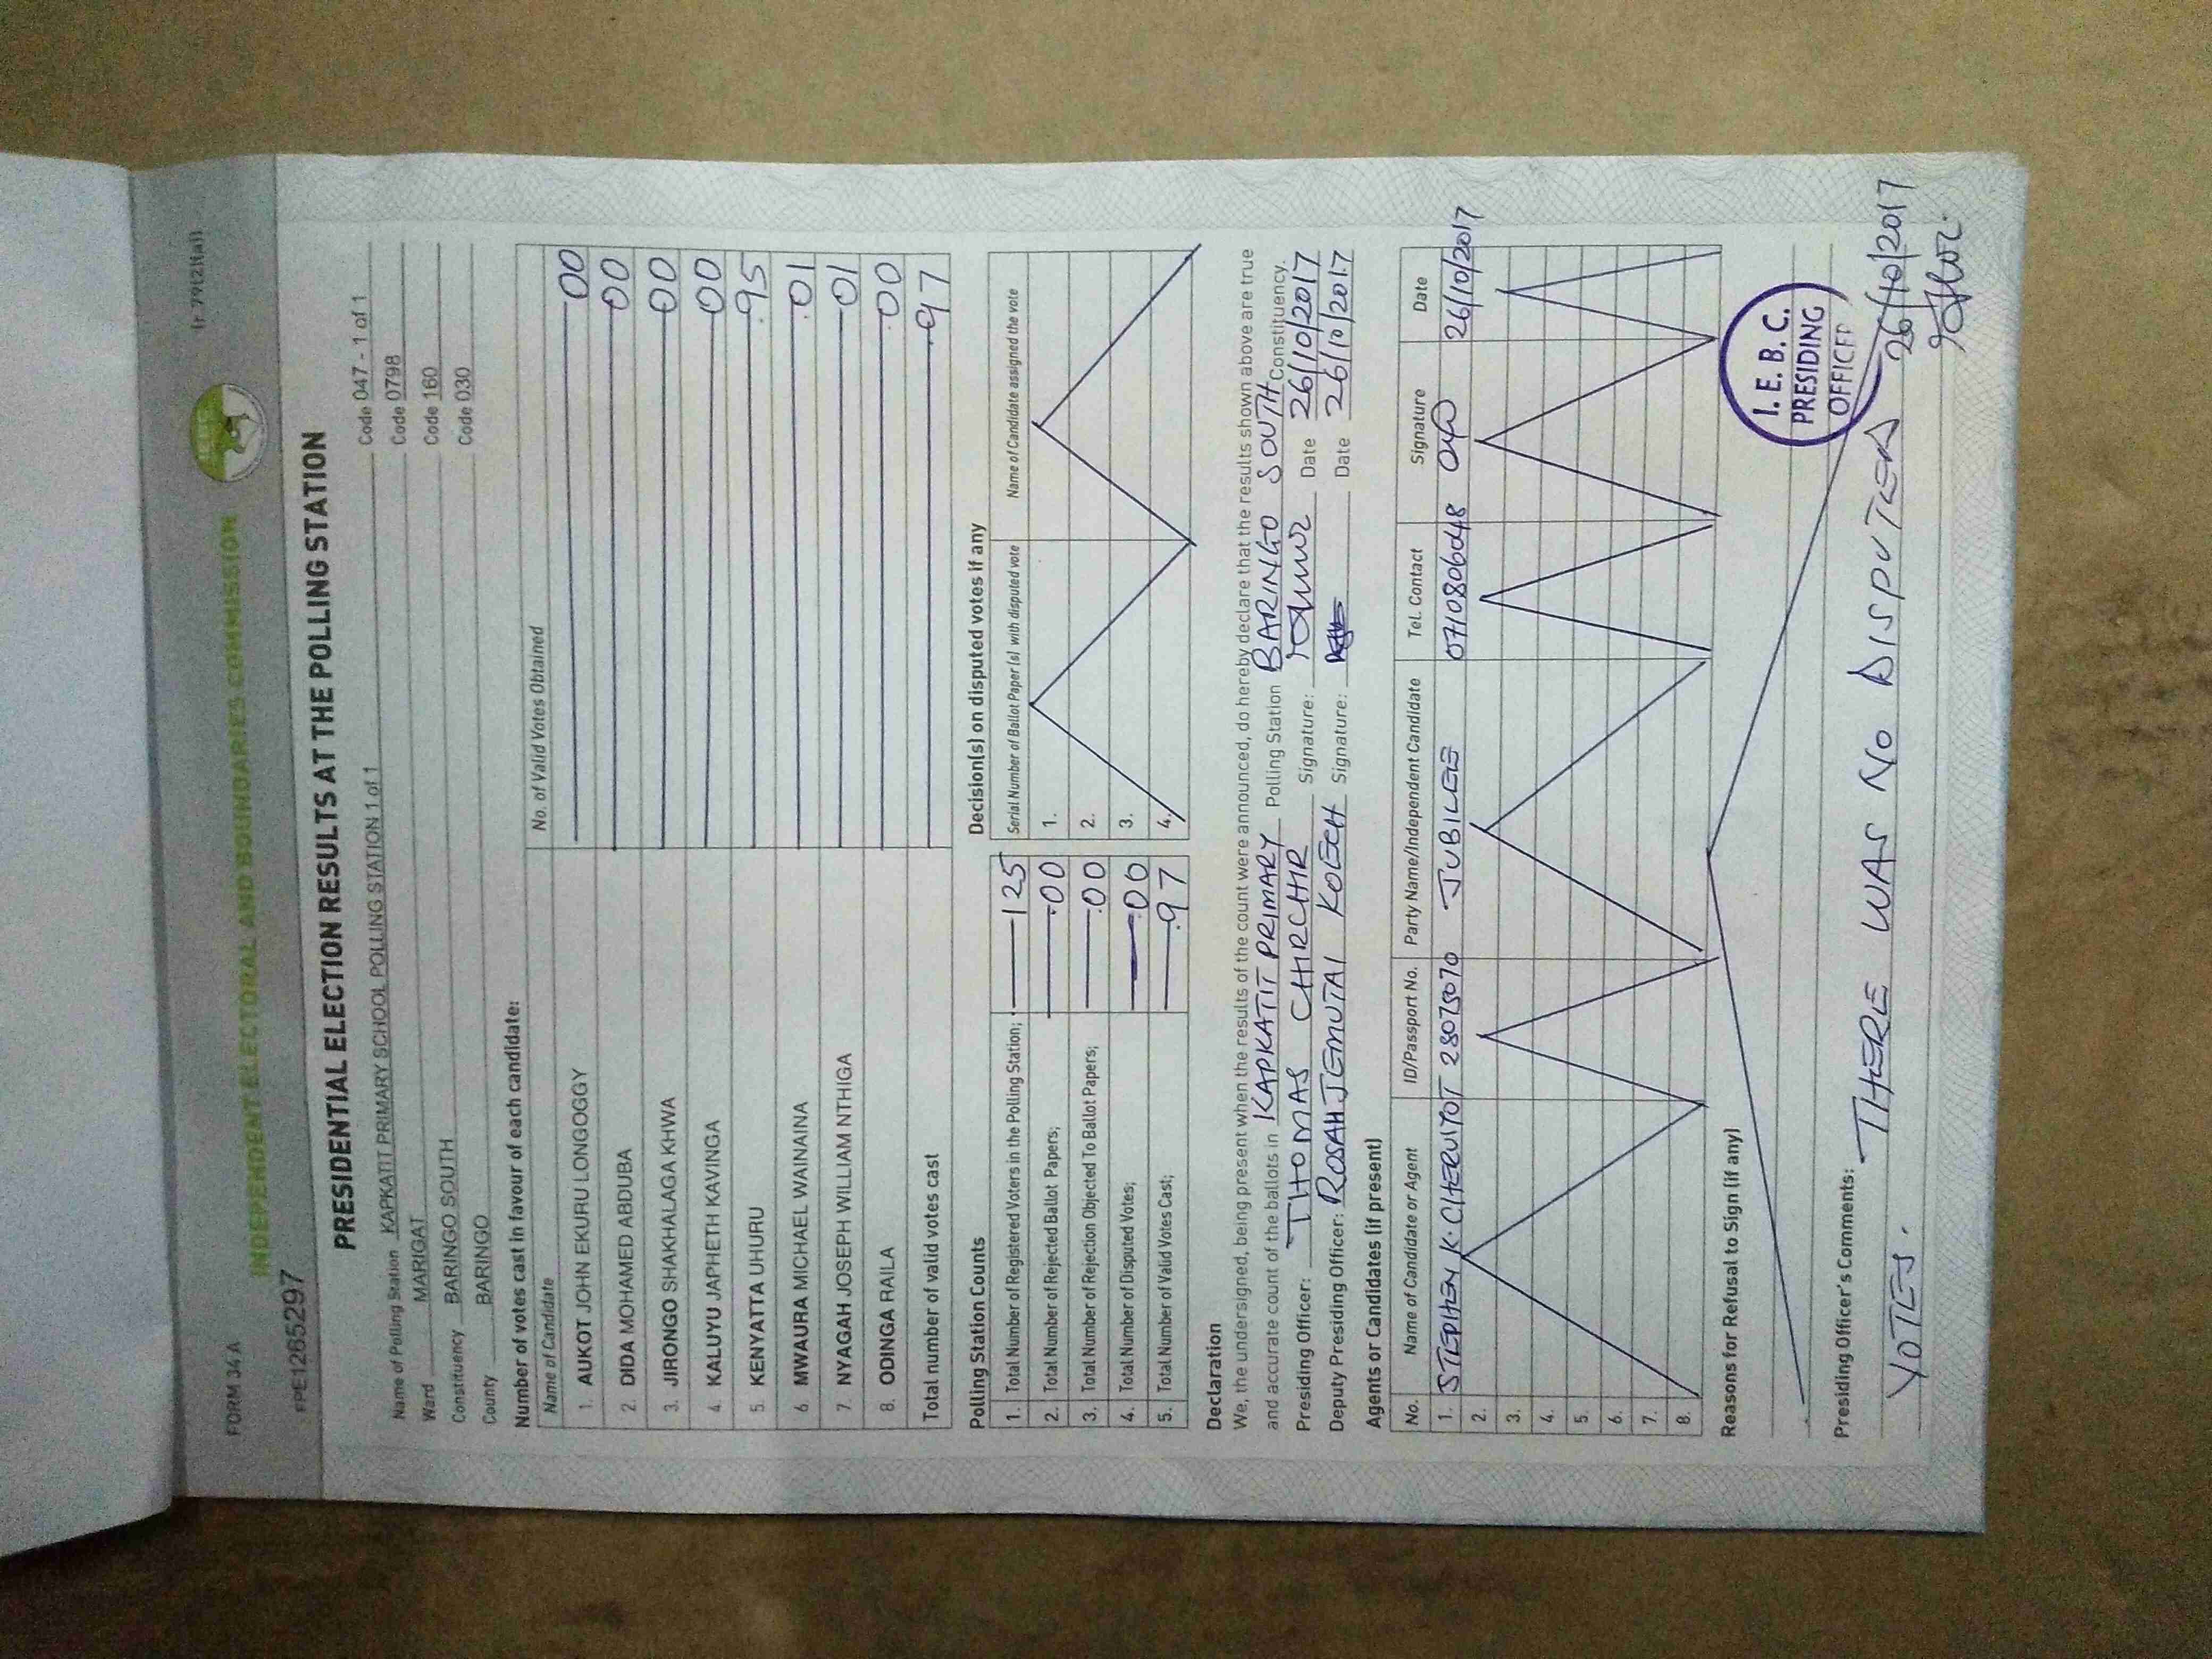 FORM 34A
(r 79(2)(a))
INDEPENDENT ELECTORAL AND BOUNDARIES COMMISSION
IEBC
PRESIDENTIAL ELECTION RESULTS AT THE POLLING STATION
Name of Polling Station KAPKATIT PRIMARY SCHOOL POLLING STATION 1 of 1 Code 047 - 1 of 1
Ward MARIGAT Code 0798
Constituency BARINGO SOUTH Code 160
County BARINGO Code 030
Number of votes cast in favour of each candidate:
Name of Candidate No. of Valid Votes Obtained
1. AUKOT JOHN EKURU LONGOGGY 00
2. DIDA MOHAMED ABDUBA 00
3. JIRONGO SHAKHALAGA KHWA 00
4. KALUYU JAPHETH KAVINGA 00
5. KENYATTA UHURU 95
6. MWAURA MICHAEL WAINAINA 01
7. NYAGAH JOSEPH WILLIAM NTHIGA 01
8. ODINGA RAILA 00
Total number of valid votes cast 97
Polling Station Counts
1. Total Number of Registered Voters in the Polling Station; 125
2. Total Number of Rejected Ballot Papers; 00
3. Total Number of Rejection Objected To Ballot Papers; 00
4. Total Number of Disputed Votes; 00
5. Total Number of Valid Votes Cast; 97
Decision(s) on disputed votes if any
Serial Number of Ballot Paper(s) with disputed vote Name of Candidate assigned the vote
1.
2.
3.
4.
Declaration
We, the undersigned, being present when the results of the count were announced, do hereby declare that the results shown above are true
and accurate count of the ballots in KAPKATIT PRIMARY Polling Station BARINGO SOUTH Constituency.
Presiding Officer: THOMAS CHIRCHIR Signature: Date 26/10/2017
Deputy Presiding Officer: ROSAH JEMUTAI KOECH Signature: Date 26/10/2017
Agents or Candidates (if present)
No. Name of Candidate or Agent ID/Passport No. Party Name/Independent Candidate Tel. Contact Signature Date
1. STEPHEN K. CHERUTOT JUBILEE 26/10/2017
2.
3.
4.
5.
6.
7.
8.
Reasons for Refusal to Sign (if any)
I.E.B.C.
PRESIDING
OFFICER
Presiding Officer's Comments: THERE WAS NO DISPUTED 26/10/2017
VOTES.